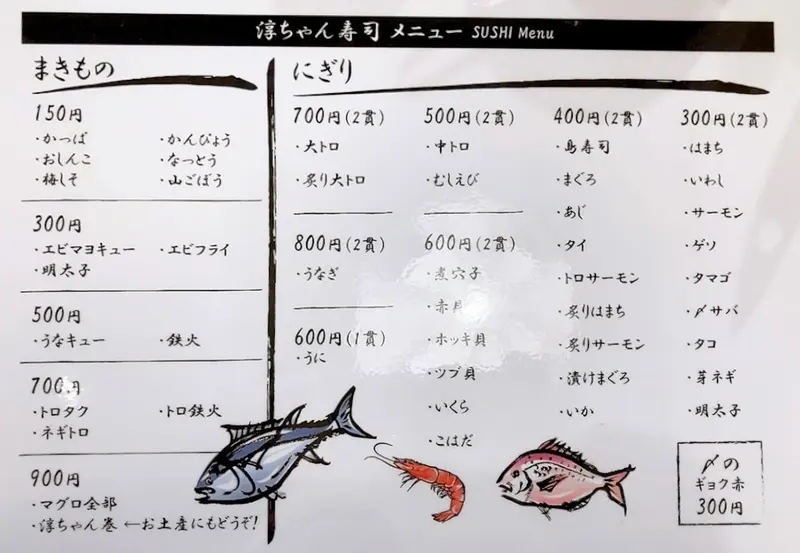 淳ちゃん寿司 メニュー SUSHI Menu
まきもの
150円
・かっぱ ・かんぴょう
・おしんこ ・なっとう
・梅しそ ・山ごぼう
300円
・エビマヨキュー ・エビフライ
・明太子
500円
・うなキュー ・鉄火
700円
・トロタク ・トロ鉄火
・ネギトロ
900円
・マグロ全部
・淳ちゃん巻 ←お土産にもどうぞ!
にぎり
700円(2貫)
・大トロ
・炙り大トロ
800円(2貫)
・うなぎ
600円(1貫)
・うに
500円(2貫)
・中トロ
・むしえび
600円(2貫)
・煮穴子
・赤貝
・ホッキ貝
・ツブ貝
・いくら
・こはだ
400円(2貫)
・島寿司
・まぐろ
・あじ
・タイ
・トロサーモン
・炙りはまち
・炙りサーモン
・漬けまぐろ
・いか
300円(2貫)
・はまち
・いわし
・サーモン
・ゲソ
・タマゴ
・〆サバ
・タコ
・芽ネギ
・明太子
〆の
ギョク赤
300円